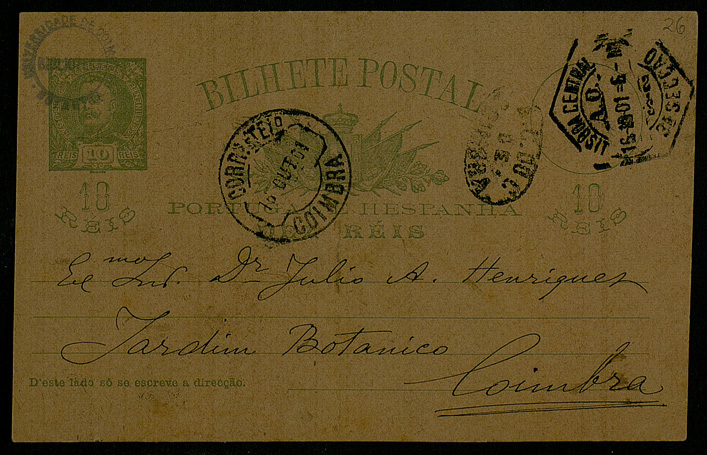 26
UNIVERSIDADE DE COIMBRA
BILHETE POSTAL
REIS 10 REIS
LISBOA CENTRAL
SECÇÃO
16 01 6
CORRº E TELº
OUT 01
COIMBRA
10 REIS
10 REIS
PORTUGAL E HESPANHA
DEZ RÉIS
Exmo Snr. Dr Julio A. Henriques
Jardim Botanico
Coimbra
D'este lado só se escreve a direcção.